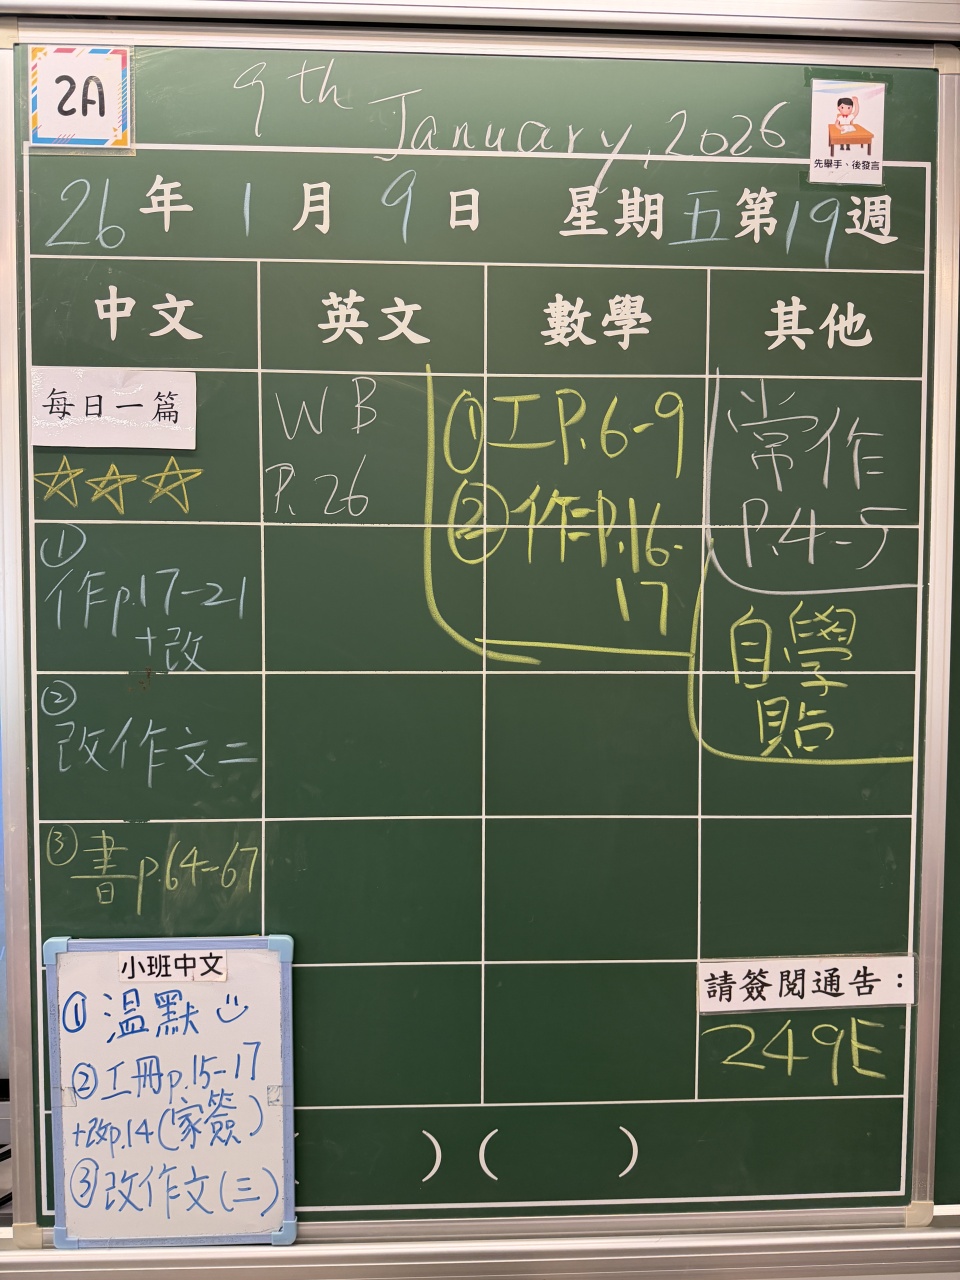 2A
9th January, 2026
先舉手、後發言
26年1月9日 星期五第19週
中文
每日一篇
①
作p.17-21
+改
②
改作文二
③書p.64-67
英文
WB
P.26
數學
①工P.6-9
②作P.16-
17
其他
常作
P.4-5
自學
貼
請簽閱通告：
249E
小班中文
①溫默
②工冊p.15-17
+改p.14(家簽)
③改作文(三)
) ( )